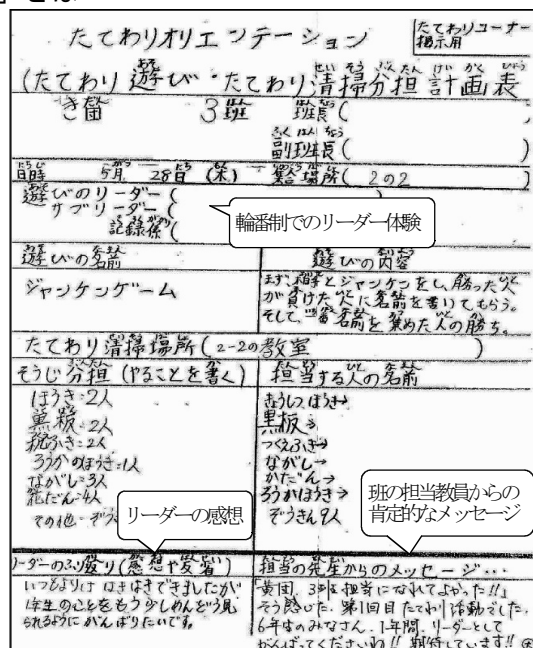 たてわりオリエンテーション
たてわりコーナー
掲示用
(たてわり遊び・たてわり清掃分担計画表
3班 班長(
副班長( )
日時 5月 28日 (木) 集合場所( 2の2 )
遊びのリーダー(
サブリーダー(
記録係(
輪番制でのリーダー体験
遊びの名前
遊びの内容
ジャンケンゲーム
まず、相手とジャンケンをし、勝った人
が負けた人に名前を書いてもらう。
そして、一番名前を集めた人の勝ち。
たてわり清掃場所(2-2の教室 )
そうじ分担(やることを書く)
担当する人の名前
ほうき=2人
黒板=2人
机ふき=2人
ろうかのほうき=1人
ながし=3人
花だん=4人
その他=ぞう
きょうしつほうき→
黒板→
つくえふき→
ながし→
かだん→
ろうかほうき→
ぞうきん9人
リーダーの感想
班の担当教員からの
肯定的なメッセージ
リーダーのふり返り(感想や反省)
いつもよりは はきはきできましたが
1年生のことをもう少しめんどう見
られるようにがんばりたいです。
担当の先生からのメッセージ…
「黄団、3班担当になれてよかった!!」
そう感じた、第1回目たてわり活動でした。
6年生のみなさん、1年間、リーダーとして
がんばってくださいね!! 期待しています!!